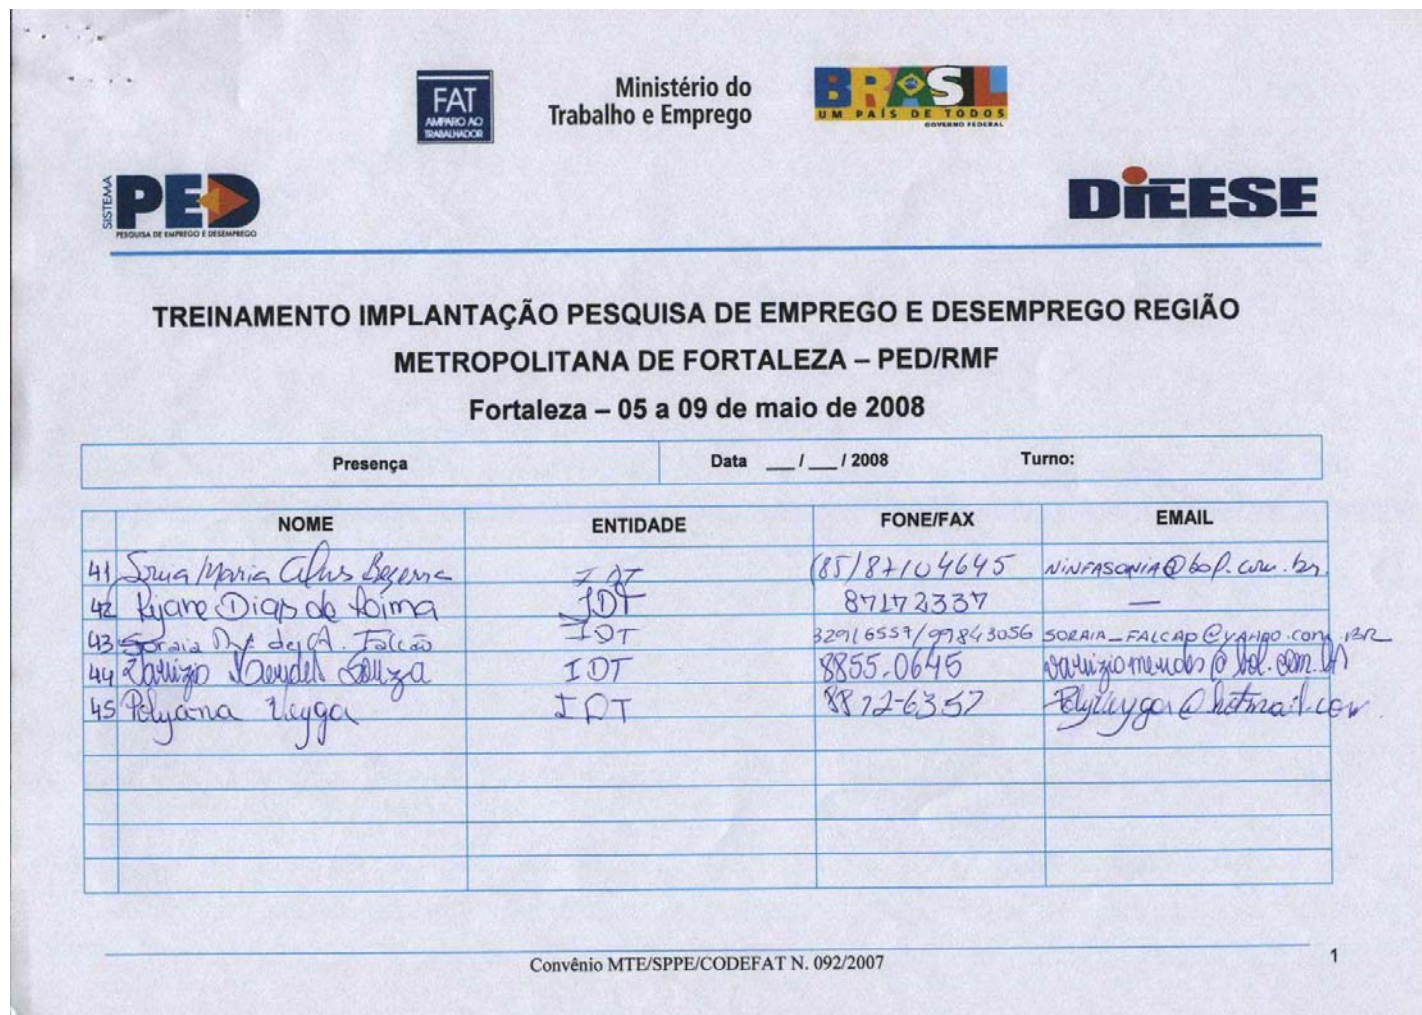 FAT
AMPARO AO
TRABALHADOR
Ministério do
Trabalho e Emprego
BRASIL
UM PAÍS DE TODOS
GOVERNO FEDERAL
SISTEMA
PED
PESQUISA DE EMPREGO E DESEMPREGO
DIEESE
TREINAMENTO IMPLANTAÇÃO PESQUISA DE EMPREGO E DESEMPREGO REGIÃO
METROPOLITANA DE FORTALEZA – PED/RMF
Fortaleza – 05 a 09 de maio de 2008
Presença Data __/__/ 2008 Turno:
NOME ENTIDADE FONE/FAX EMAIL
41 Maria Alves Bezerra IDT (85) 87104645 NINFASONIA@bol.com.br
42 Rijane Dias de Loima IDT 87172337 —
43 Soraia Mª de A. Falcão IDT 32916557/99843056 SORAIA_FALCAO@YAHOO.COM.BR
44 Mendes Souza IDT 8855-0645 @bol.com.br
45 Polyana Veyga IDT 8872-6357 Polyveyga@hotmail.com
Convênio MTE/SPPE/CODEFAT N. 092/2007
1